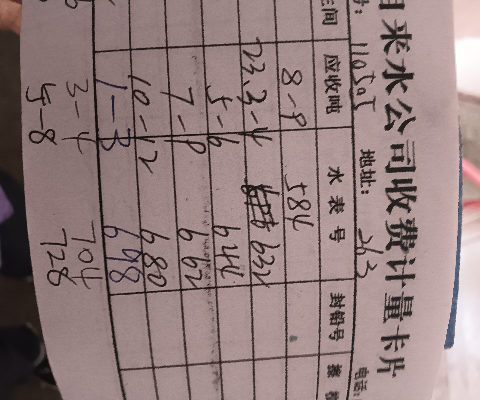 自来水公司收费计量卡片
号: 110505 地址: 263 电话:
间 应收吨 水表号 封铅号
8-9 584
23.3-4 632
5-6 644
7-9 662
10-12 680
1-3 698
3-4 704
5-8 728